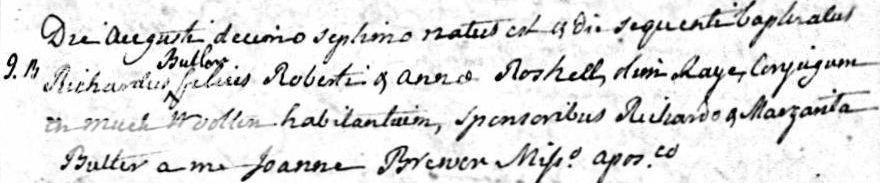 Die Augusti decimo septimo natus est & die sequenti baptizatus
J.B. Richardus Butler filius Roberti & Annæ Roskell, olim Kaye, Conjugum
in much Woollen habitantium, sponsoribus Richardo & Margarita
Butler a me Joanne Brewer Misso. apos.co